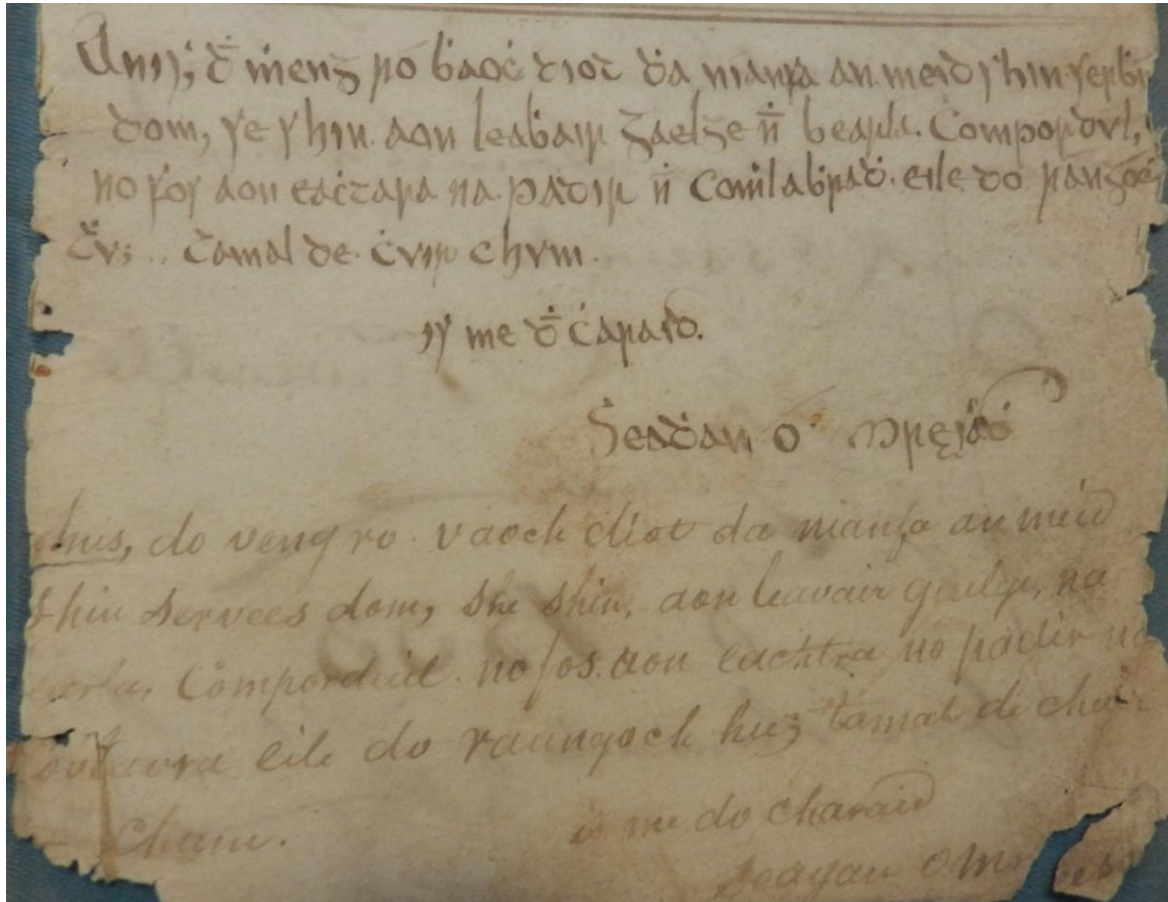 Anis, ḋ ṁeng ró ḃaoċ diot ḋa nianfa an meid shin serḃis
dom, se shin. aon leaḃair gaelge n̄ bearla. Compordul,
no fos aon eaċtara na padir n̄ Coṁlaḃraḋ. eile do rangoċ
ċu; .. tamal de. ċuir chum.
is me ḋ ċaraid.
Seaḋan ó
do veng ro vaoch diot da nianfa an meid
shin Servees dom, she shin, aon leavair gaelge, na
Comporduil. no fos. aon eachtra no padir na
eile do raungoch hug tamal de
Chum. is me do charaid
Seayan O